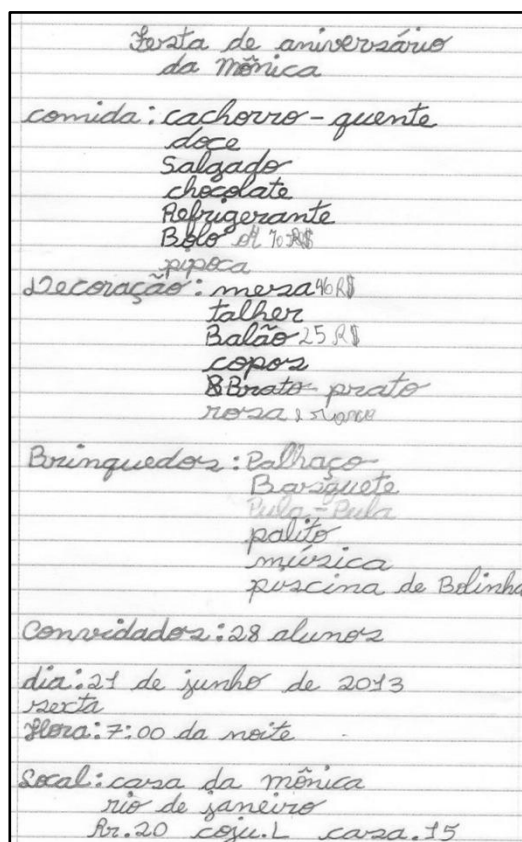 Festa de aniversário
da Mônica
comida: cachorro-quente
doce
Salgado
chocolate
Refrigerante
Bolo 70 R$
pipoca
Decoração: mesa 46 R$
talher
Balão 25 R$
copos
Brato prato
rosa e
Brinquedos: Palhaço
Basquete
Pula-Pula
palito
música
piscina de Bolinha
Convidados: 28 alunos
dia: 21 de junho de 2013
sexta
Hora: 7:00 da noite
Local: casa da mônica
rio de janeiro
Ar.20 coju.L casa.15